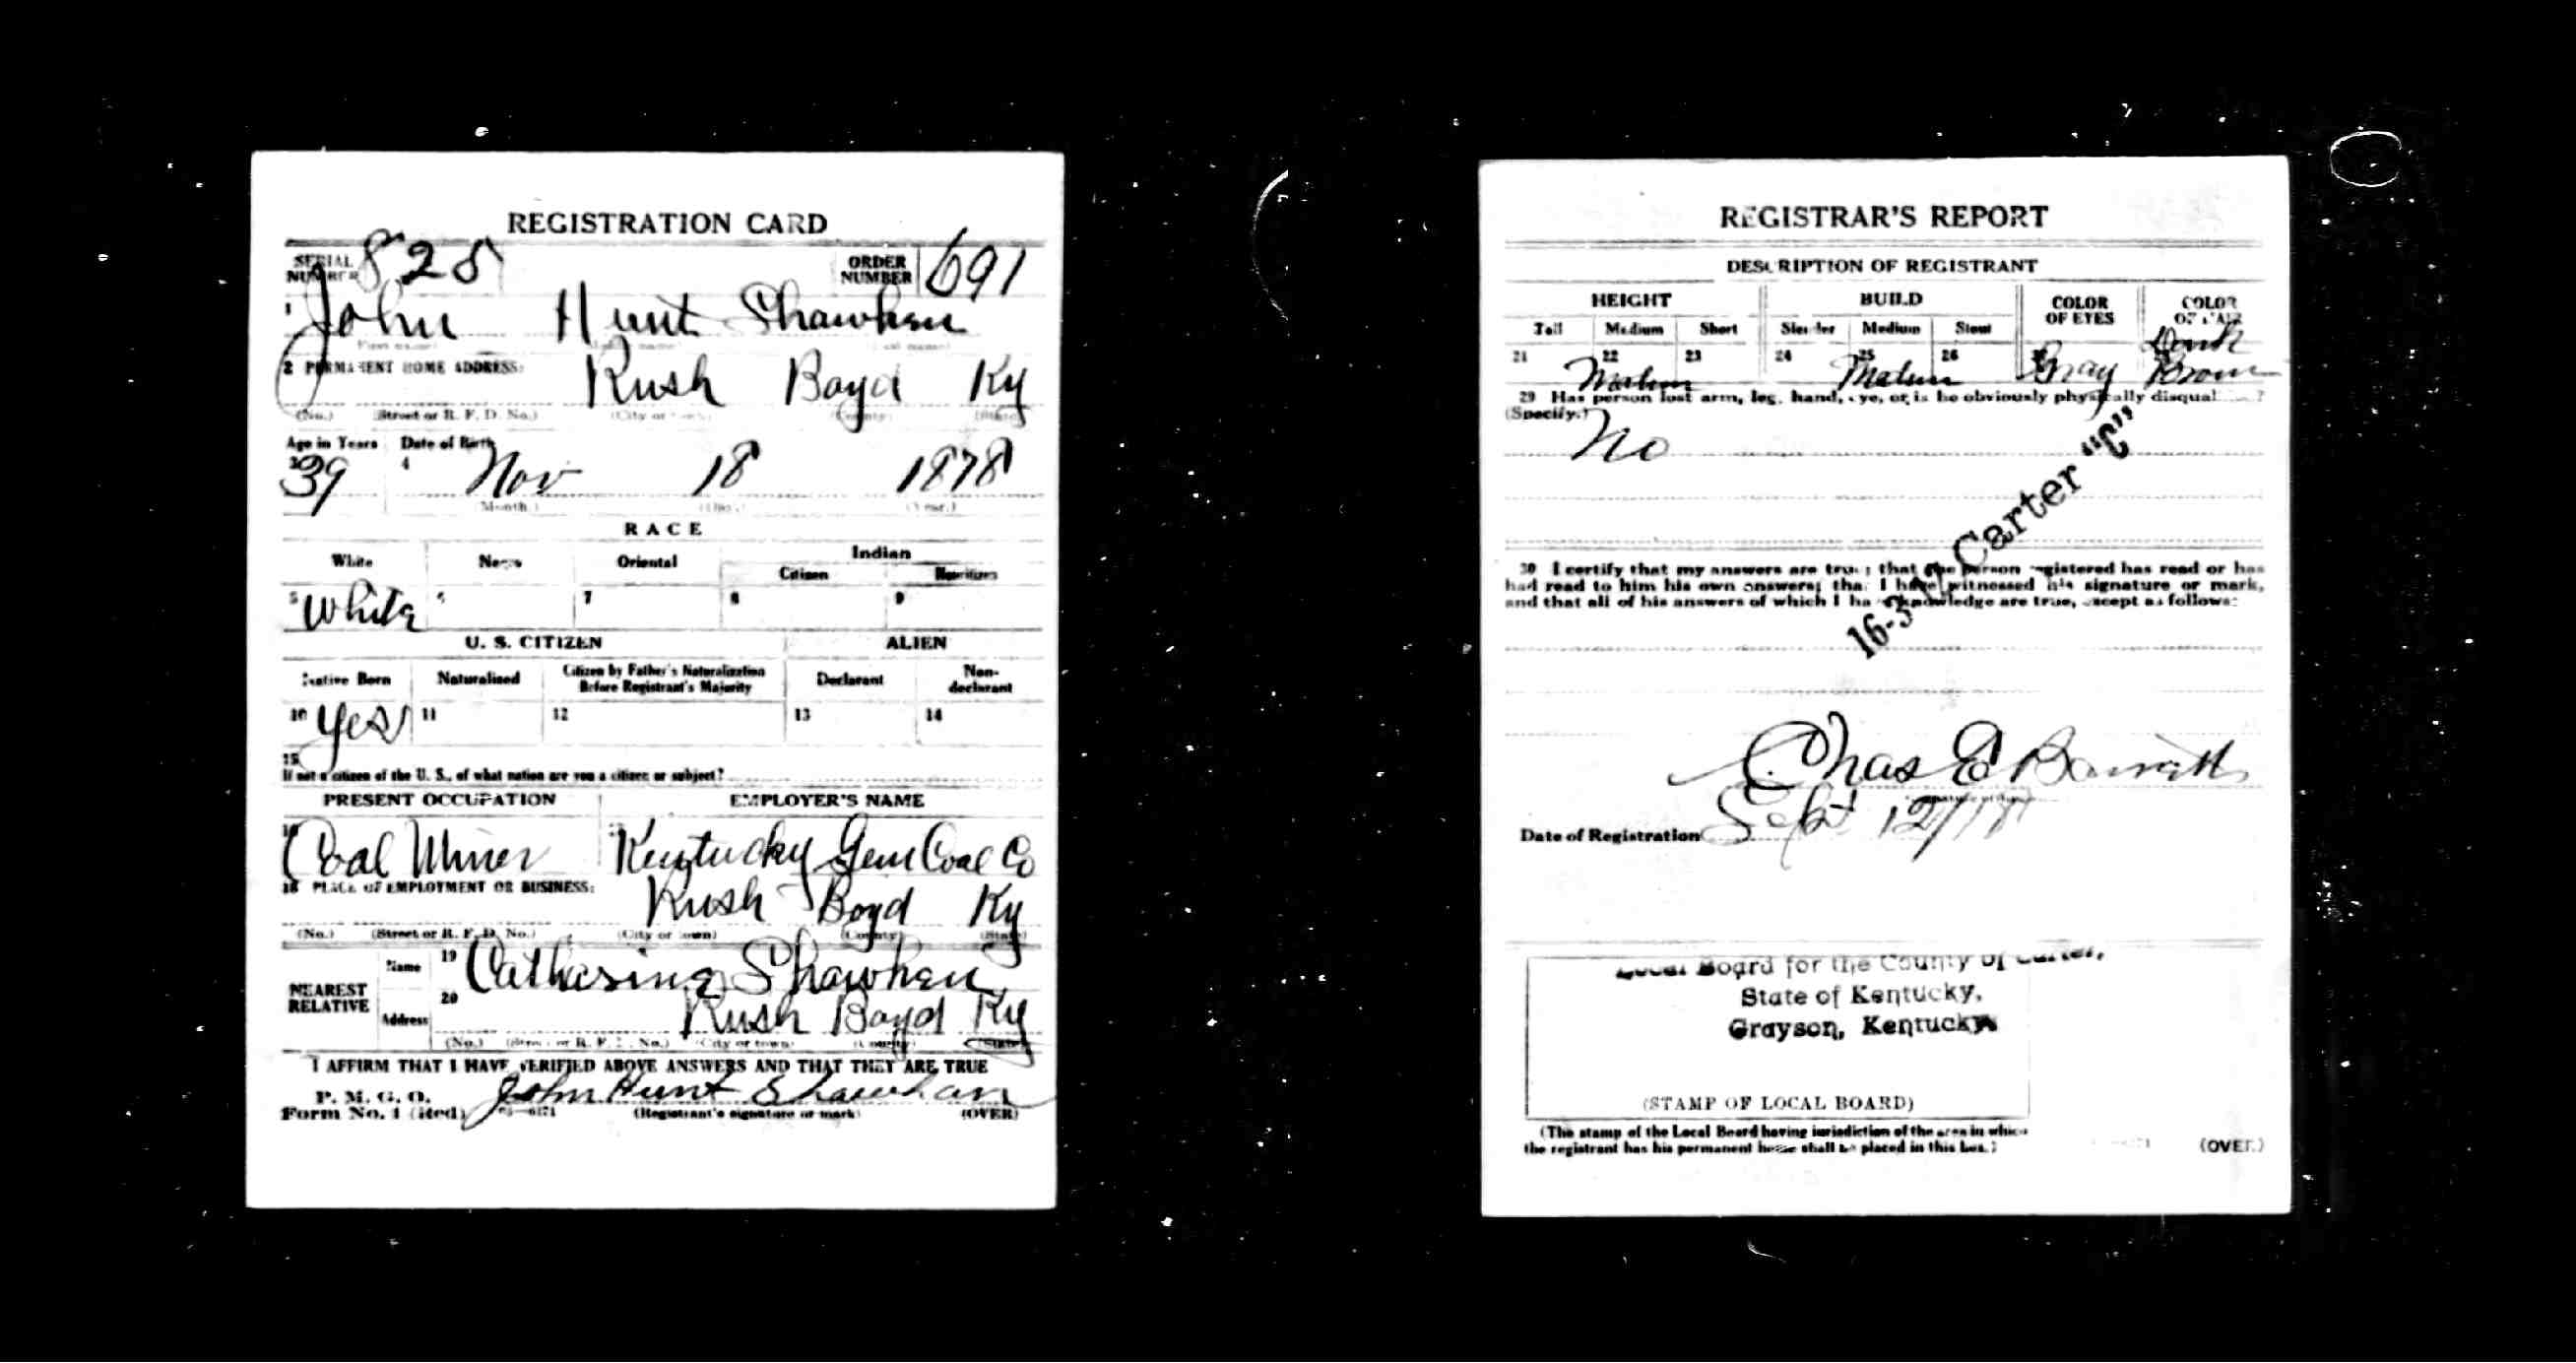 REGISTRATION CARD
SERIAL NUMBER 825 ORDER NUMBER 691
1 John Hunt Shawhan
(First name) (Middle name) (Last name)
2 PERMANENT HOME ADDRESS:
Rush Boyd Ky
(No.) (Street or R. F. D. No.) (City or town) (County) (State)
Age in Years Date of Birth
3 39 4 Nov 18 1878
(Month.) (Day.) (Year.)
RACE
White Negro Oriental Indian
Citizen Noncitizen
5 White 6 7 8 9
U. S. CITIZEN ALIEN
Native Born Naturalized Citizen by Father's Naturalization Before Registrant's Majority Declarant Non-declarant
10 Yes 11 12 13 14
15
If not a citizen of the U. S., of what nation are you a citizen or subject?
PRESENT OCCUPATION EMPLOYER'S NAME
16 Coal Miner Kentucky Gem Coal Co
18 PLACE OF EMPLOYMENT OR BUSINESS:
Rush Boyd Ky
(No.) (Street or R. F. D. No.) (City or town) (County) (State)
NEAREST RELATIVE
Name 19 Catherine Shawhan
Address 20 Rush Boyd Ky
(No.) (Street or R. F. D. No.) (City or town) (County) (State)
I AFFIRM THAT I HAVE VERIFIED ABOVE ANSWERS AND THAT THEY ARE TRUE
P. M. G. O.
Form No. 1 (Red) John Hunt Shawhan
(Registrant's signature or mark) (OVER)
REGISTRAR'S REPORT
DESCRIPTION OF REGISTRANT
HEIGHT BUILD COLOR OF EYES COLOR OF HAIR
Tall Medium Short Slender Medium Stout
21 22 23 24 25 26
Gray Dark Brown
29 Has person lost arm, leg, hand, eye, or is he obviously physically disqual
(Specify.)
No
16-3-17 Carter "C"
30 I certify that my answers are true; that the person registered has read or has
had read to him his own answers; that I have witnessed his signature or mark,
and that all of his answers of which I have knowledge are true, except as follows:
Chas E
Date of Registration Sept 12/18
Local Board for the County of Carter,
State of Kentucky,
Grayson, Kentucky
(STAMP OF LOCAL BOARD)
(The stamp of the Local Board having jurisdiction of the area in which
the registrant has his permanent home shall be placed in this box.)
(OVER)